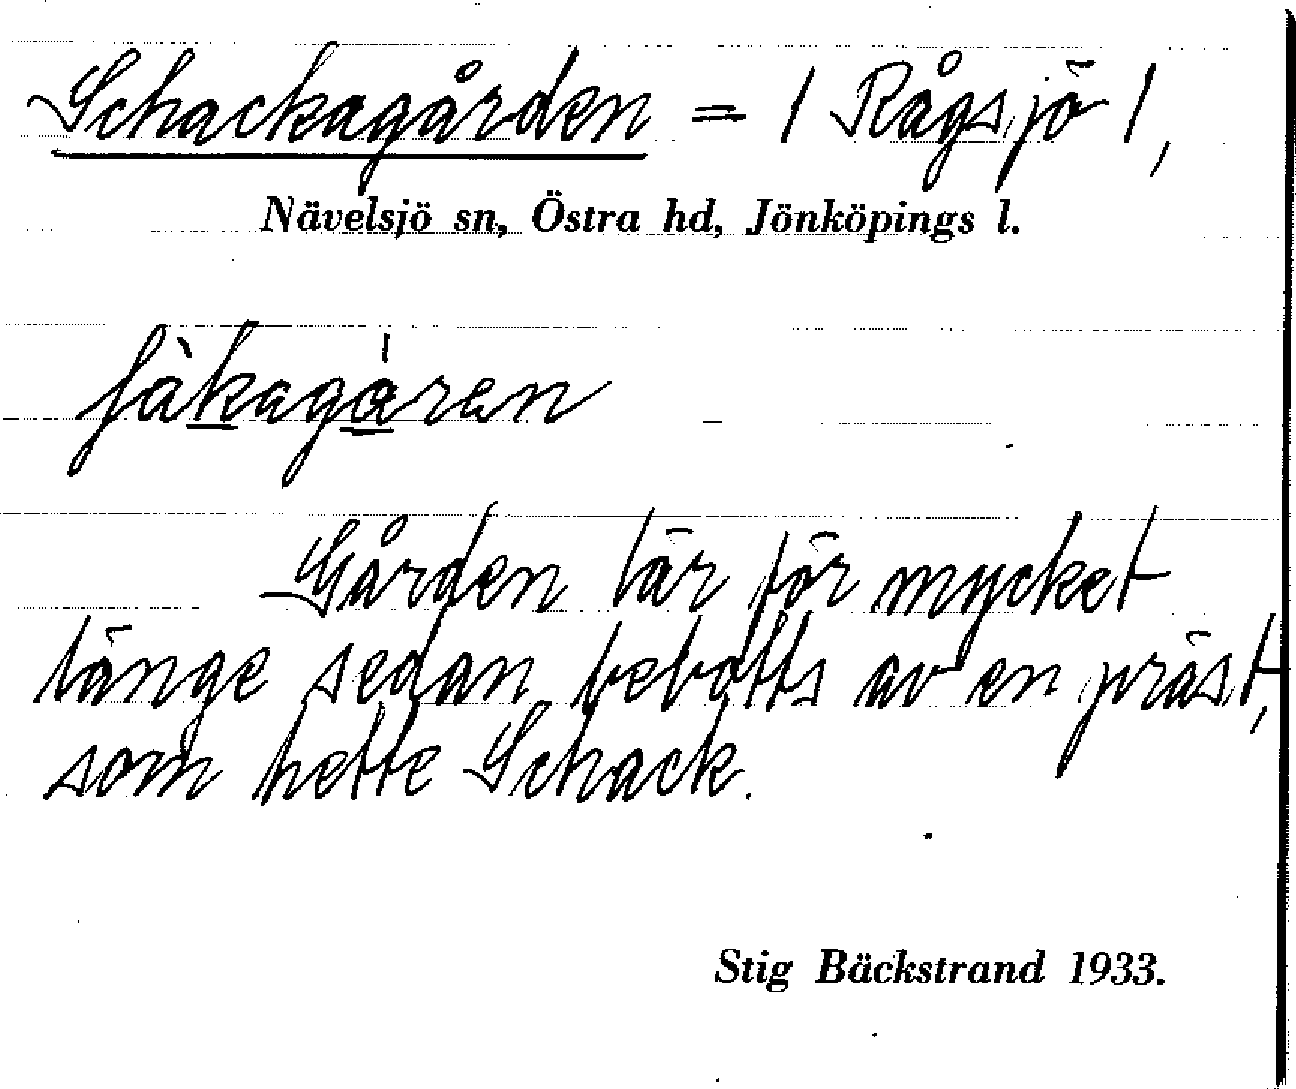 Schackagården = / Rågsjö /,
Nävelsjö sn, Östra hd, Jönköpings l.
Gården lär för mycket
länge sedan bebotts av en präst,
som hette Schack.
Stig Bäckstrand 1933.